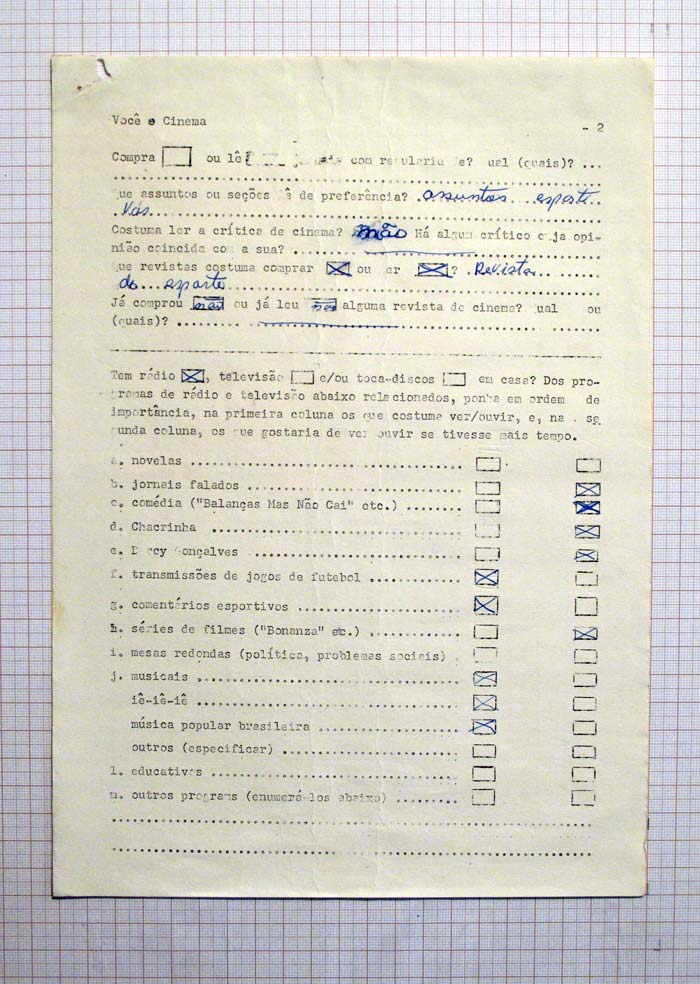 Você e Cinema
- 2
Compra ou lê com ? (quais)? ...
assuntos ou seções de preferência? assuntos esporti
vos
Costuma ler a crítica de cinema? não Há algum crítico cuja opi-
nião coincide com a sua? ....
que revistas costuma comprar ou ? Revistas
de esporte
Já comprou não ou já leu não alguma revista de cinema? ou
(quais)? ....
Tem rádio , televisão e/ou toca-discos em casa? Dos pro-
gramas de rádio e televisão abaixo relacionados, ponha em ordem de
importância, na primeira coluna os que costuma ver/ouvir, e, na se
gunda coluna, os que gostaria de ver ouvir se tivesse mais tempo.
a. novelas ....
b. jornais falados ....
c. comédia ("Balanças Mas Não Cai" etc.) ....
d. Chacrinha ....
e. Gonçalves ....
f. transmissões de jogos de futebol ....
g. comentários esportivos ....
h. séries de filmes ("Bonanza" etc.) ....
i. mesas redondas (política, problemas sociais)
j. musicais ....
iê-iê-iê
música popular brasileira ....
outros (especificar) ....
l. educativos ....
m. outros programs (enumerá-los abaixo) ....